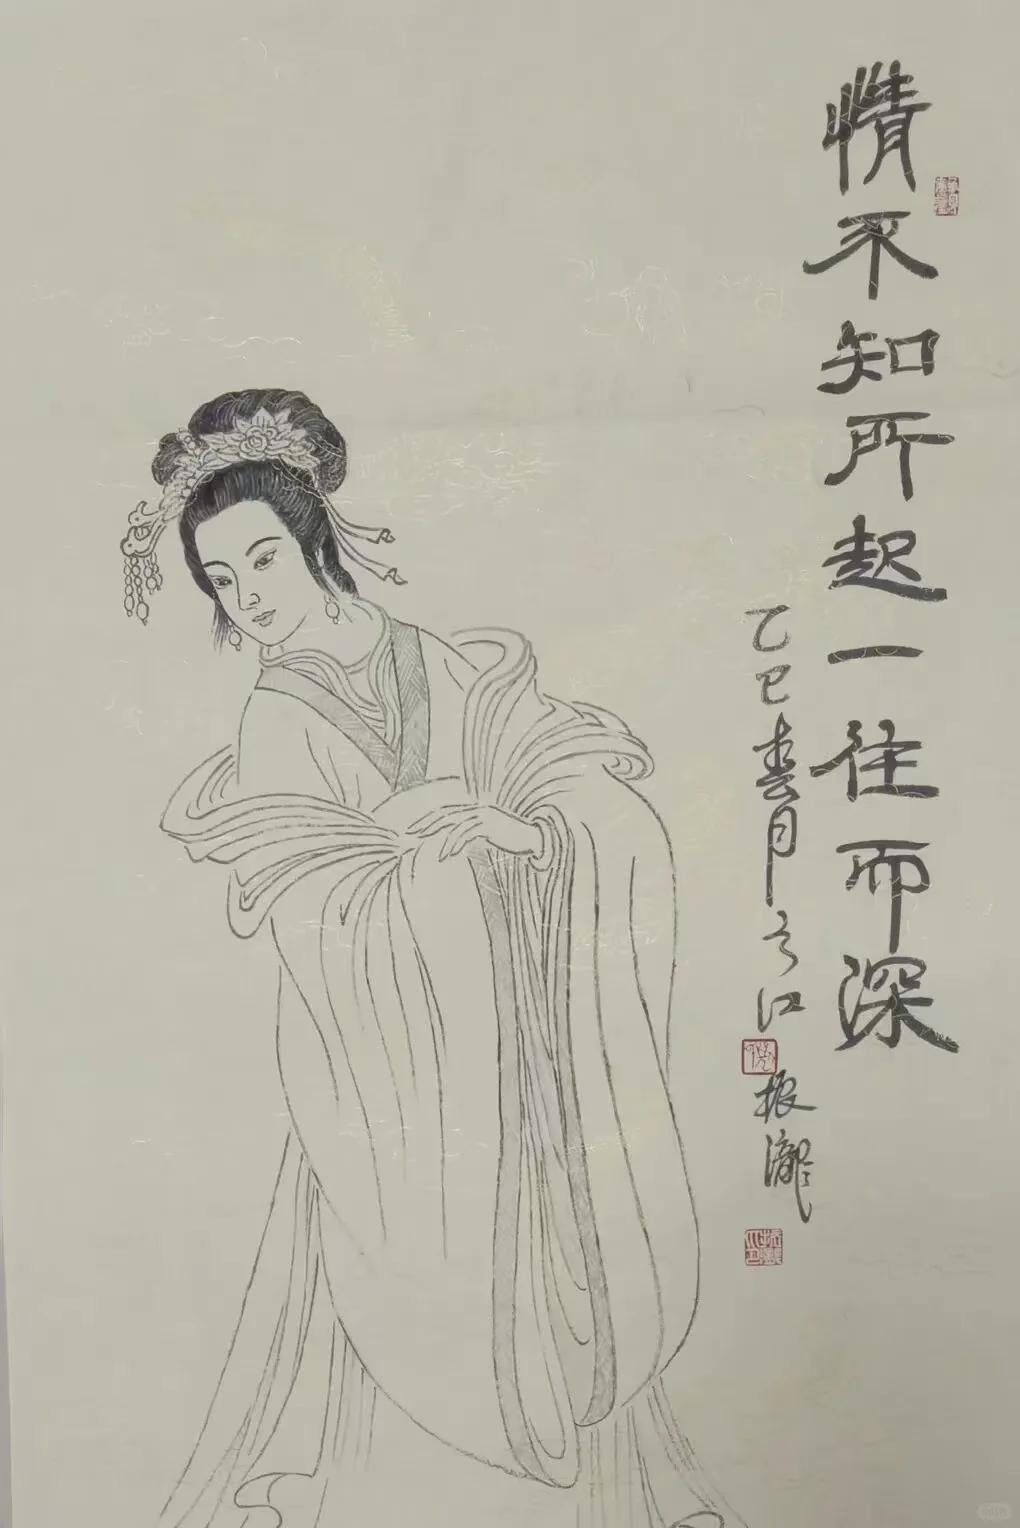 情不知所起一往而深
乙巳春月
江
振瀧